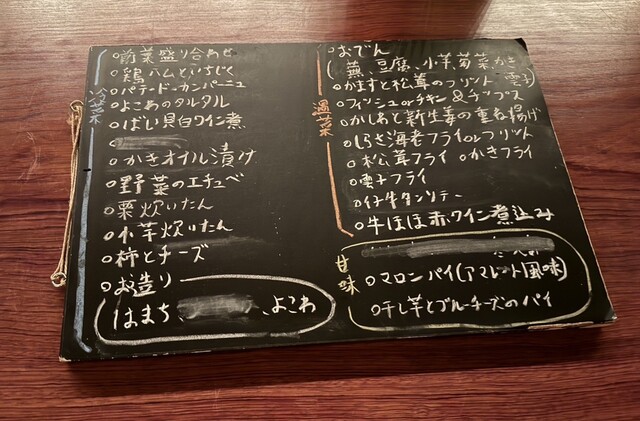 冷菜
前菜盛り合わせ
鶏ハムといちじく
パテ・ド・カンパーニュ
よこわのタルタル
ばい貝白ワイン煮
かきオイル漬け
野菜のエチュベ
栗炊いたん
小芋炊いたん
柿とチーズ
お造り
はまち、、よこわ
温菜
おでん
(蕪、豆腐、小芋、菊菜、かき
雲子)
かますと松茸のフリット
フィッシュorチキン&チップス
かしわと新生姜の重ね揚げ
しらさ海老フライorフリット
松茸フライ かきフライ
雲子フライ
仔牛タンソテー
牛ほほ赤ワイン煮込み
甘味
マロンパイ(アマレット風味)
干し芋とブルーチーズのパイ